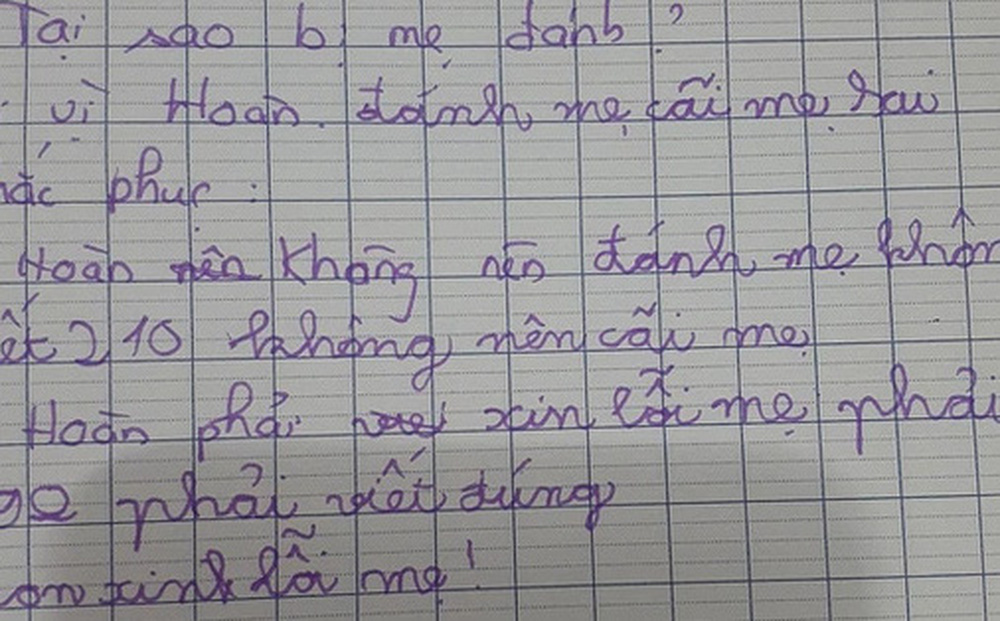 Tại sao bị mẹ đánh?
vì Hoàn đánh mẹ cãi mẹ sai
phục:
Hoàn nên không nên đánh mẹ
210 không nên cãi mẹ
Hoàn phải xin lỗi mẹ phải
phải viết đúng
xinh lỗi mẹ!